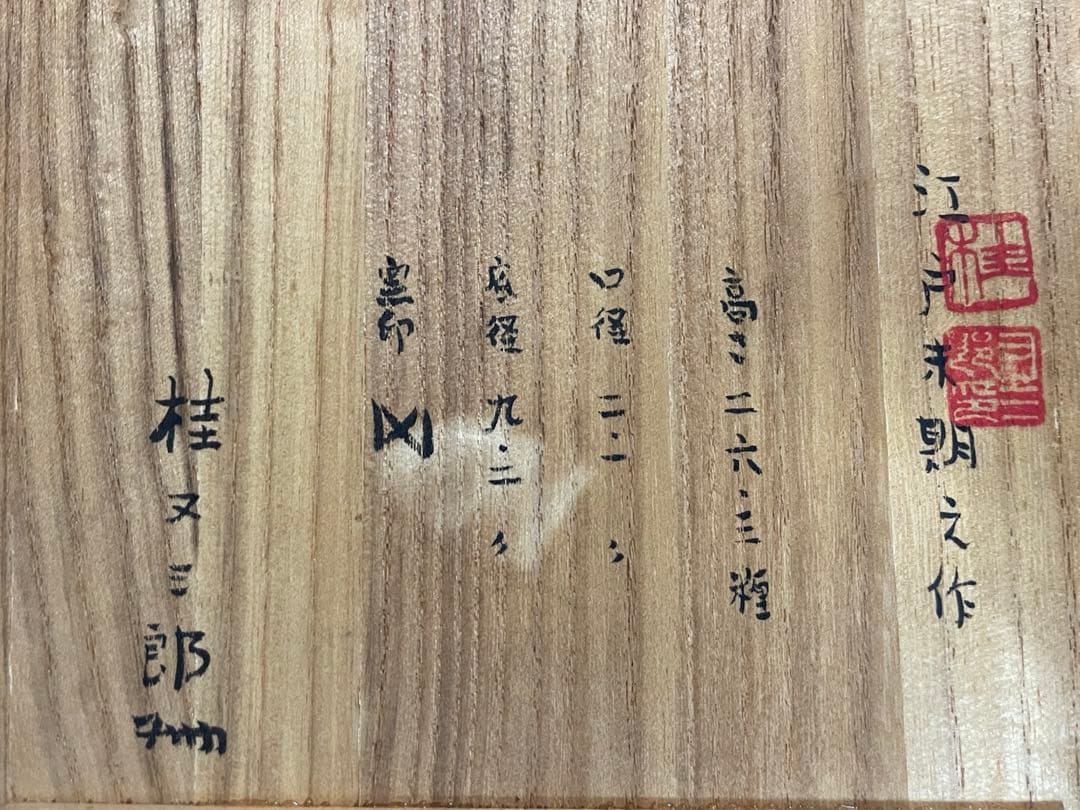 江戸末期之作
高さ二六・三糎
口径 二・一 〃
底径 九・二 〃
窯印
桂又三郎
桂